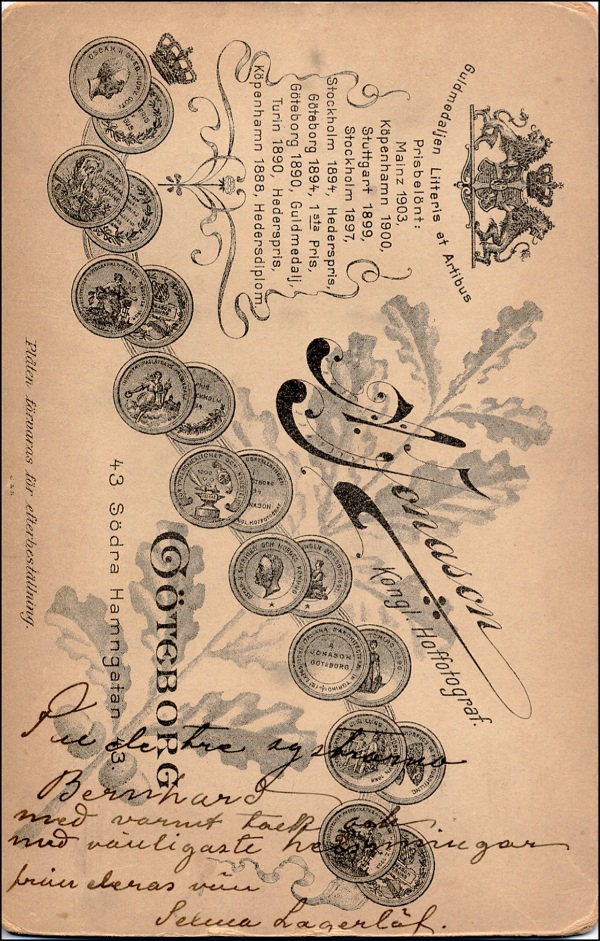 Guldmedaljen Litteris et Artibus
Prisbelönt:
Mainz 1903,
Köpenhamn 1900,
Stuttgart 1899,
Stockholm 1897,
Stockholm 1894, Hederspris,
Göteborg 1894, 1sta Pris,
Göteborg 1890, Guldmedalj,
Turin 1890, Hederspris,
Köpenhamn 1888, Hedersdiplom
Jonason
Kongl. Hoffotograf.
GÖTEBORG
43 Södra Hamngatan 43.
Plåten förvaras för efterbeställning.
A
JONASON
GÖTEBORG
de tre systrarna
Bernhard
med varmt tack och
med vänligaste helsningar
från deras vän
Selma Lagerlöf.